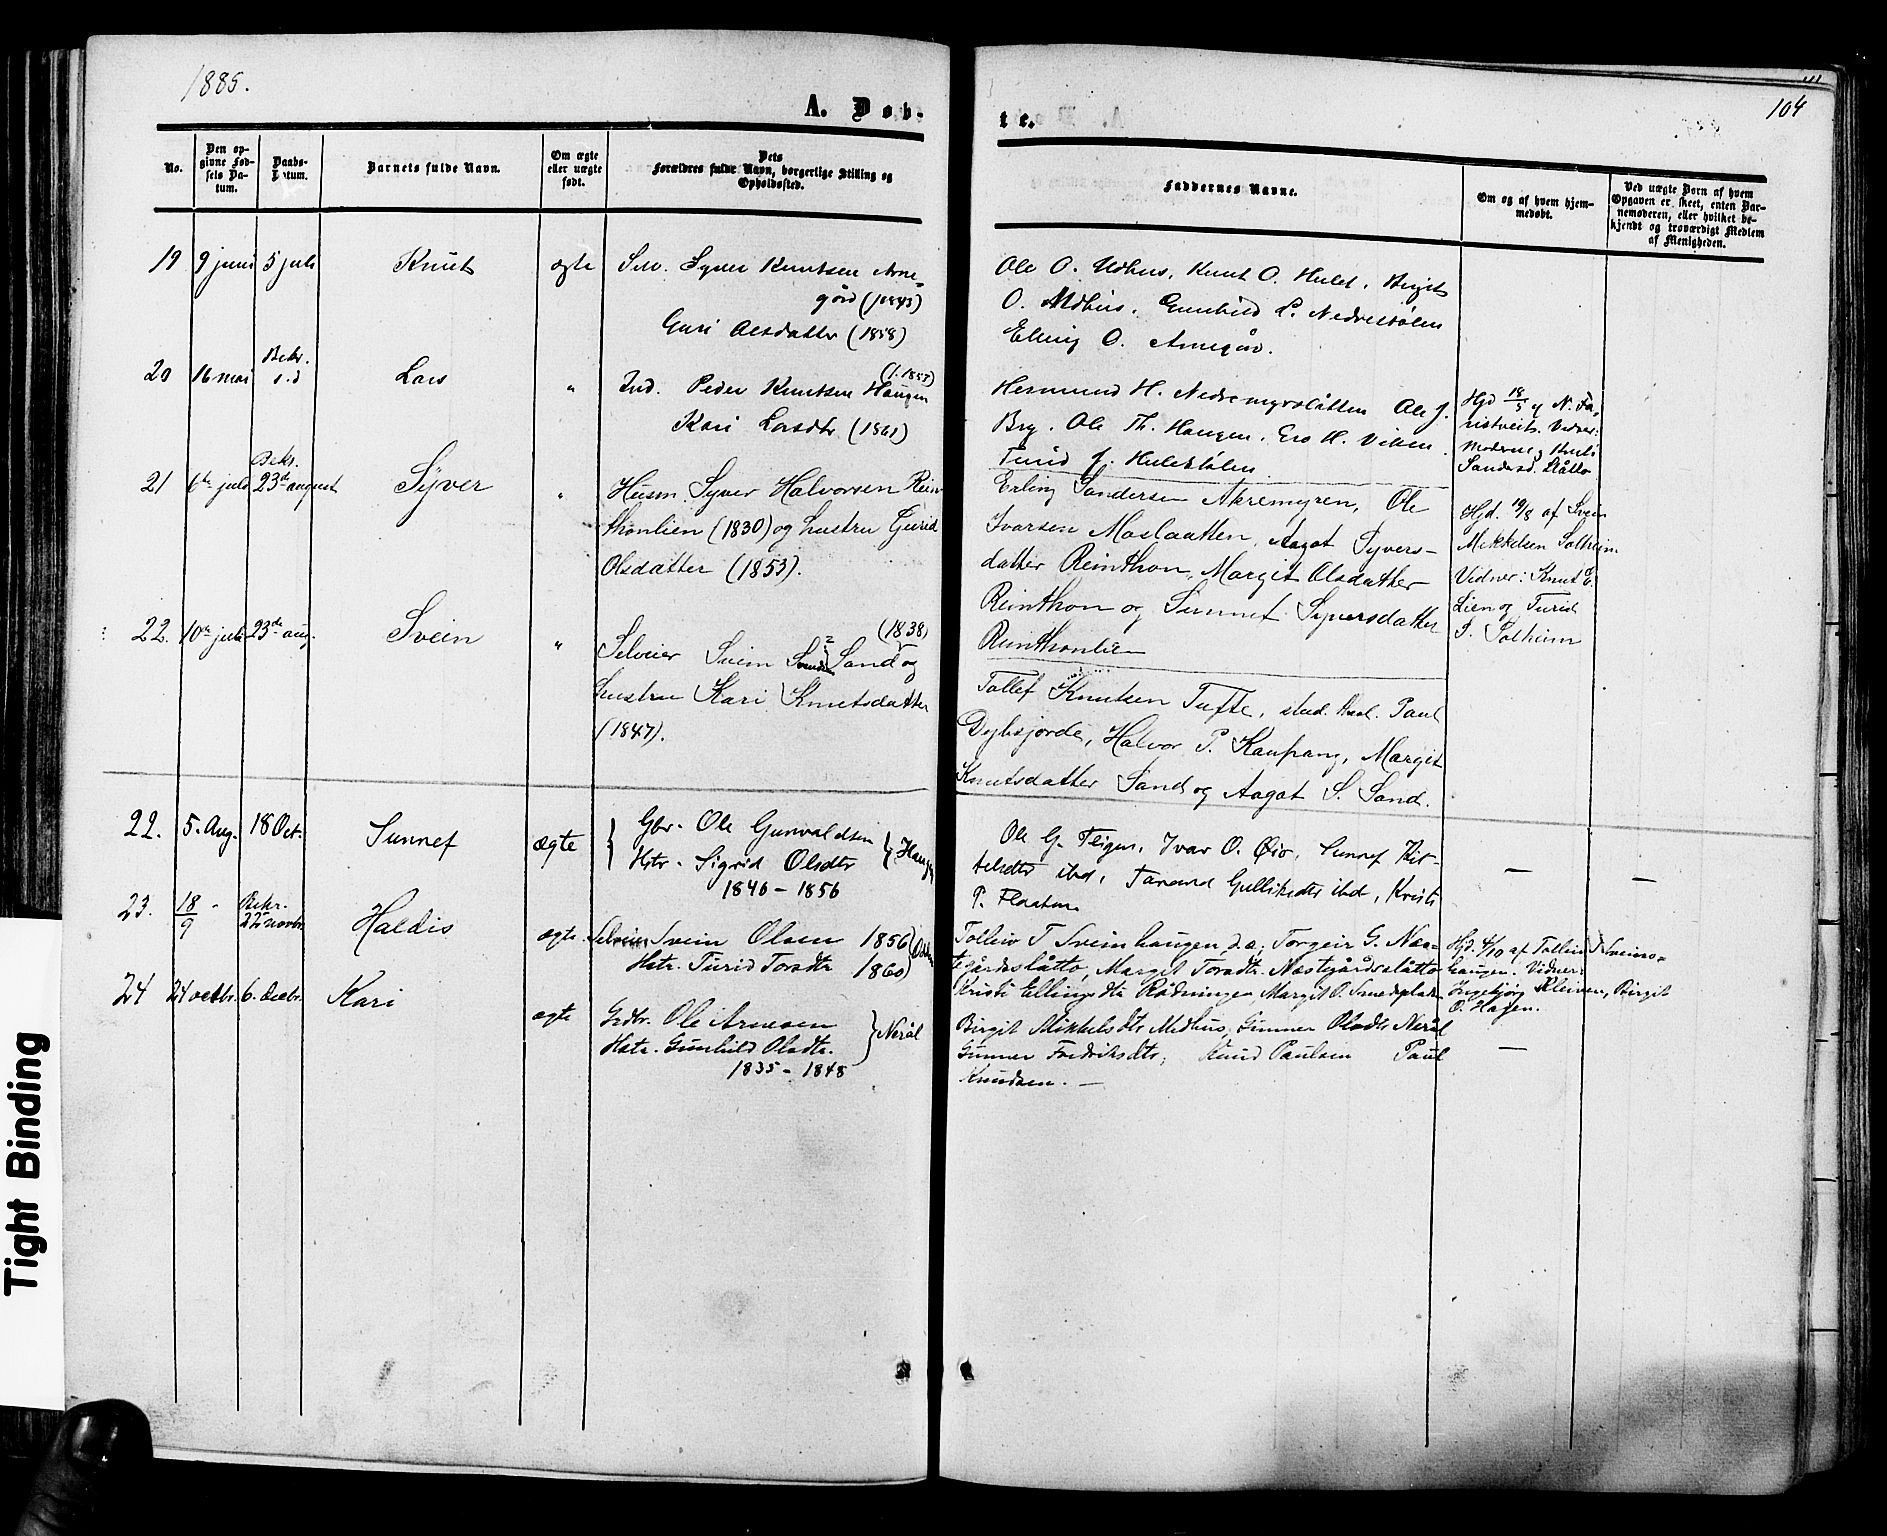 1885.
104
A. Døb-
te.
No.
Den op-
givne Fød-
sels Da-
tum.
Daabs-
Datum.
Barnets fulde Navn.
Om ægte
eller uægte
født.
Dets
Forældres fulde Navn, borgerlige Stilling og
Opholdssted.
Faddernes Navne.
Om og af hvem hjem-
medøbt.
Ved uægte Børn af hvem
Opgaven er skeet, enten Bar-
nemoderen, eller hvilket be-
kjendt og troværdigt Medlem
af Menigheden.
19 9 juni 5 juli Knut ægte Selv. Syver Knutsen Arne-
gård (1843)
Guri Olsdatter (1858)
Ole O. Udhus, Knut O. Hulet, Birgit
O. Udhus, Gunhild L. Nedrestølen
Elling O. Arnegård.
20 16 mai Bekr. s.d Lars " Ind. Peder Knutsen Haugen (f. 1853)
Kari Larsdtr (1861)
Hermund H. Nedremyrslåtten Ole J.
Bry. Ole Th. Haugen, Gro H. Viken
Turid J. Hulekstølen
Hjd 18/5 af N.
Vidner:
Moderen og
Sandersd. Slåtto
21 6te juli Bekr. 23de august Syver " Husm. Syver Halvorsen Rein-
thonlien (1830) og hustru Gurid
Olsdatter (1853).
Erling Sandersen Akremyren, Ole
Ivarsen Moslaatten, Aagot Syvers-
datter Reinthon, Margit Olsdatter
Reinthon og Sunnef Syversdatter
Reinthonlien
Hjd. 19/8 af Svein
Mekkelsen Solheim
Vidner: Knut E.
Lien og Turid
S. Solheim
22. 10de juli 23de aug. Svein " Selveier Svein Svendsen Sand og (1838)
hustru Kari Knutsdatter
(1847).
Tollef Knutsen Tufte, stud. Paul
Doksjorde, Halvor P. Kaupang, Margit
Knutsdatter Sand og Aagot S. Sand.
22. 5. Aug. 18 Oct. Sunnef ægte Gbr. Ole Gunvaldsen
Hstr. Sigrid Olsdtr
1840 - 1856
Ole G. Fleigen, Ivar O. Øio, Sunnef Kit-
telsdtr ibd, Tarand Gulliksdtr ibd, Kristi
P. Flaaten
— —
23. 18/9 Bekr. 22 novbr. Haldis ægte. Selveier Svein Olsen 1856
Hstr. Turid Torsdtr 1860
Tolleiv T Sveinhaugen d.æ; Torgeir G. Næs-
tegårdsslåtto, Margit Torsdtr. Næstegårdsslåtto
Kristi Ellingsdtr Rødningen, Margit O. Smedplads
Hjd. 4/10 af Tolleiv T. Sveins-
haugen. Vidner:
Ingebjørg Kleiven, Birgit
O. Hagen.
24 24 octbr. 6. decbr. Kari ægte Grdbr. Ole Arnesen
Hstr. Gunhild Olsdtr. Nerål
1835 - 1848
Birgit Mikkelsdtr Medhus, Gunner Olsdtr Nerål
Gunner Fredriksdtr, Knud Paulsen Paul
Knudsen. —
—
Tight Binding